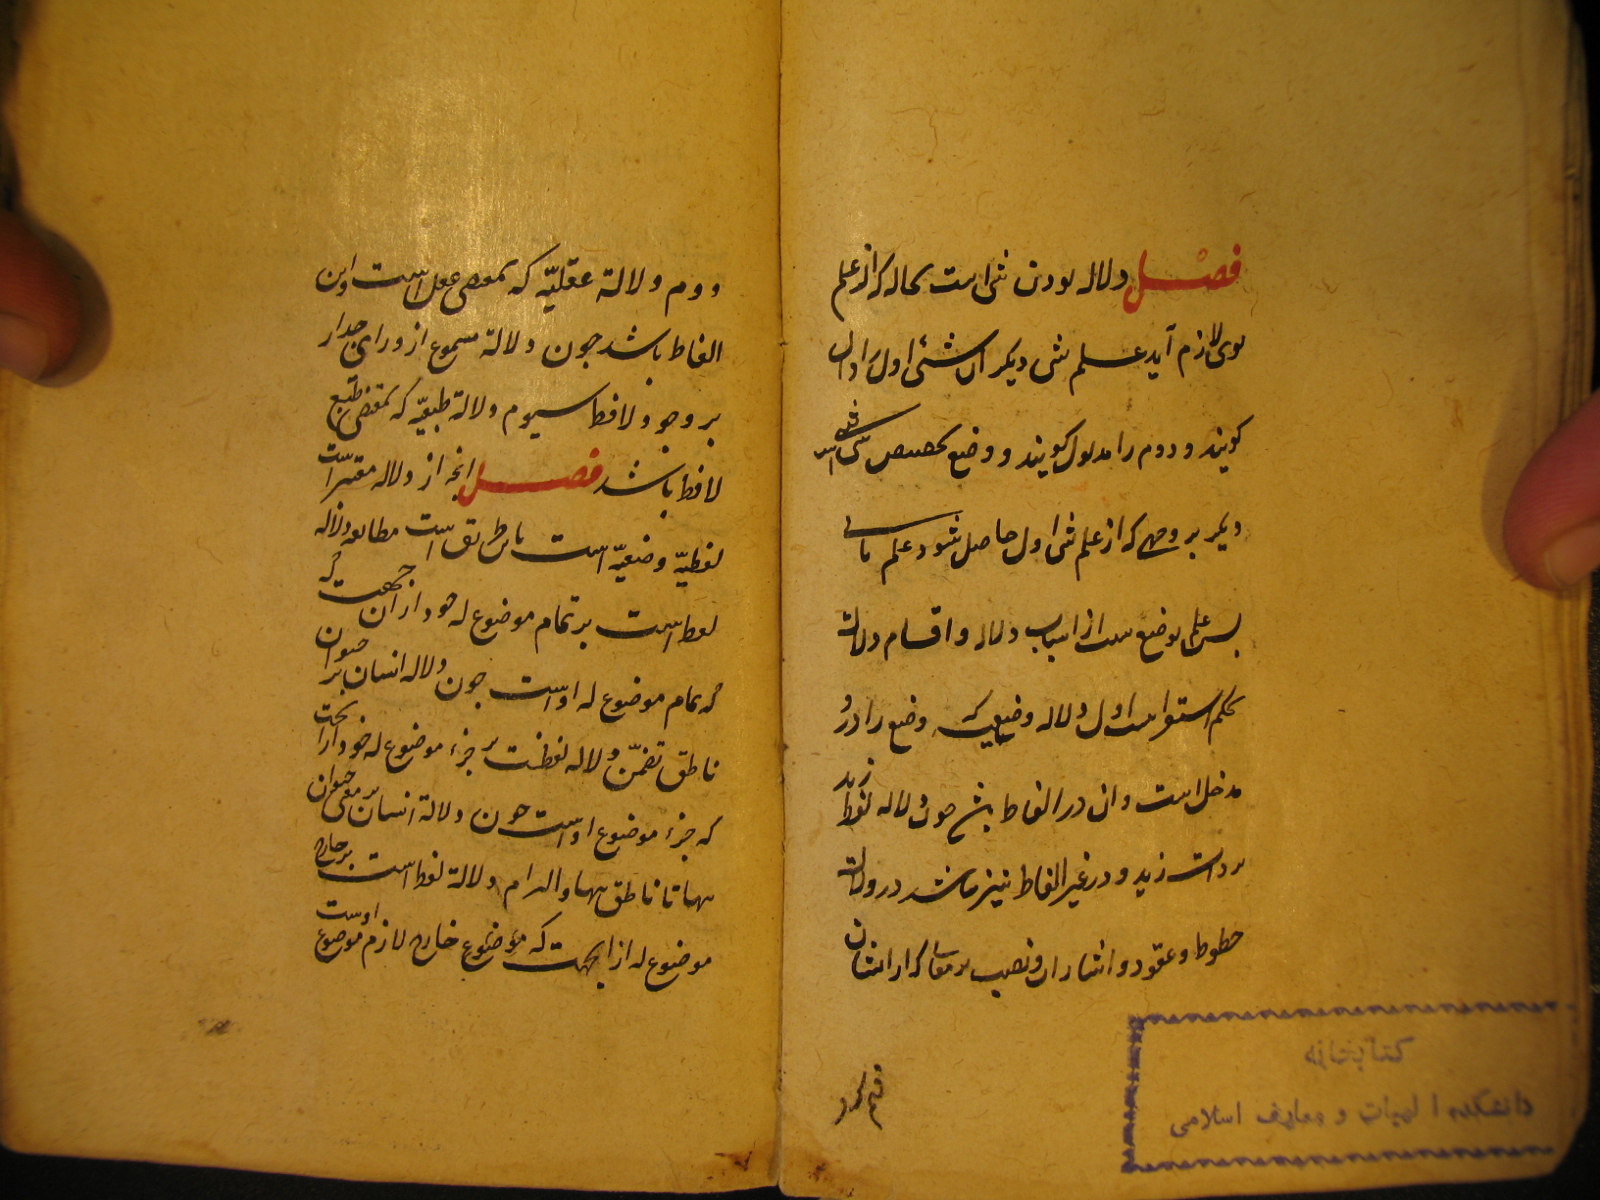 فصل دلاله بودن شی است بحاله که از علم
بوی لازم آید علم شی دیگر آن شئی اول را دال
گویند و دوم را مدلول گویند و وضع تخصیص شی است
دیگر بر وجهی که از علم شی اول حاصل شود علم ثانی
پس علم بوضع است از اسباب دلاله و اقسام دلالت
بحکم استقرا سه است اول دلاله وضعیه که وضع را درو
مدخل است و ان در الفاظ باشد چون دلاله لفظ زید
بر ذات زید و در غیر الفاظ نیز باشد در دلالت
خطوط و عقود و اشارات و نصب بر معانی که از ایشان
کتابخانه
دانشکده الهیات و معارف اسلامی
دوم دلالة عقلیّه که بمقتضی عقل است و این
الفاظ باشد چون دلالة مسموع از ورای جدار
بر وجود لافظ سیوم دلالة طبعیّه که بمقتضی طبع
لافظ باشد فصل انچه از دلاله معتبر است
لفظیّه وضعیّه است باین طریق است مطابقه دلاله
لفظ است بر تمام موضوع له خود از آن جهت که
که تمام موضوع له اوست چون دلاله انسان بر حیوان
ناطق تضمّن دلاله لفظست بر جزء موضوع له خود از آن جهت
که جزء موضوع اوست چون دلالة انسان بر معنی حیوان
تنها تا ناطق تنها و التزام دلالة لفظ است بر خارج
موضوع له از آن جهت که موضوع خارج لازم موضوع اوست